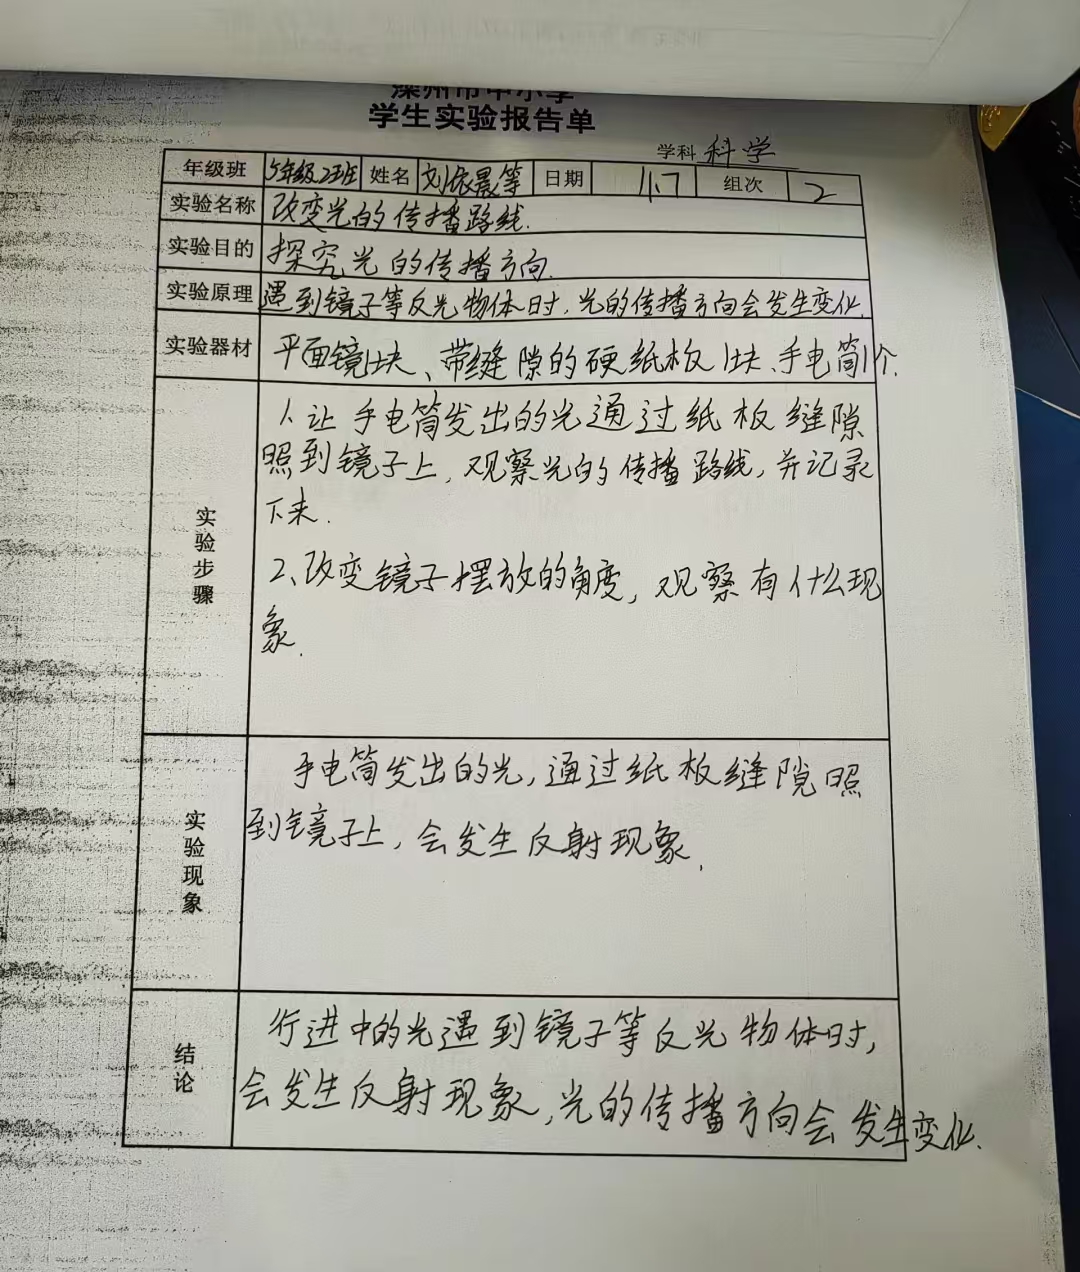 滦州市中小学
学生实验报告单
学科 科学
年级班 5年级2班 姓名 刘依晨等 日期 11.7 组次 2
实验名称 改变光的传播路线.
实验目的 探究光的传播方向.
实验原理 遇到镜子等反光物体时,光的传播方向会发生变化.
实验器材 平面镜1块、带缝隙的硬纸板1块、手电筒1个.
实验步骤
1.让手电筒发出的光通过纸板缝隙
照到镜子上,观察光的传播路线,并记录
下来.
2、改变镜子摆放的角度,观察有什么现
象.
实验现象
手电筒发出的光,通过纸板缝隙照
到镜子上,会发生反射现象.
结论
行进中的光遇到镜子等反光物体时,
会发生反射现象,光的传播方向会发生变化.